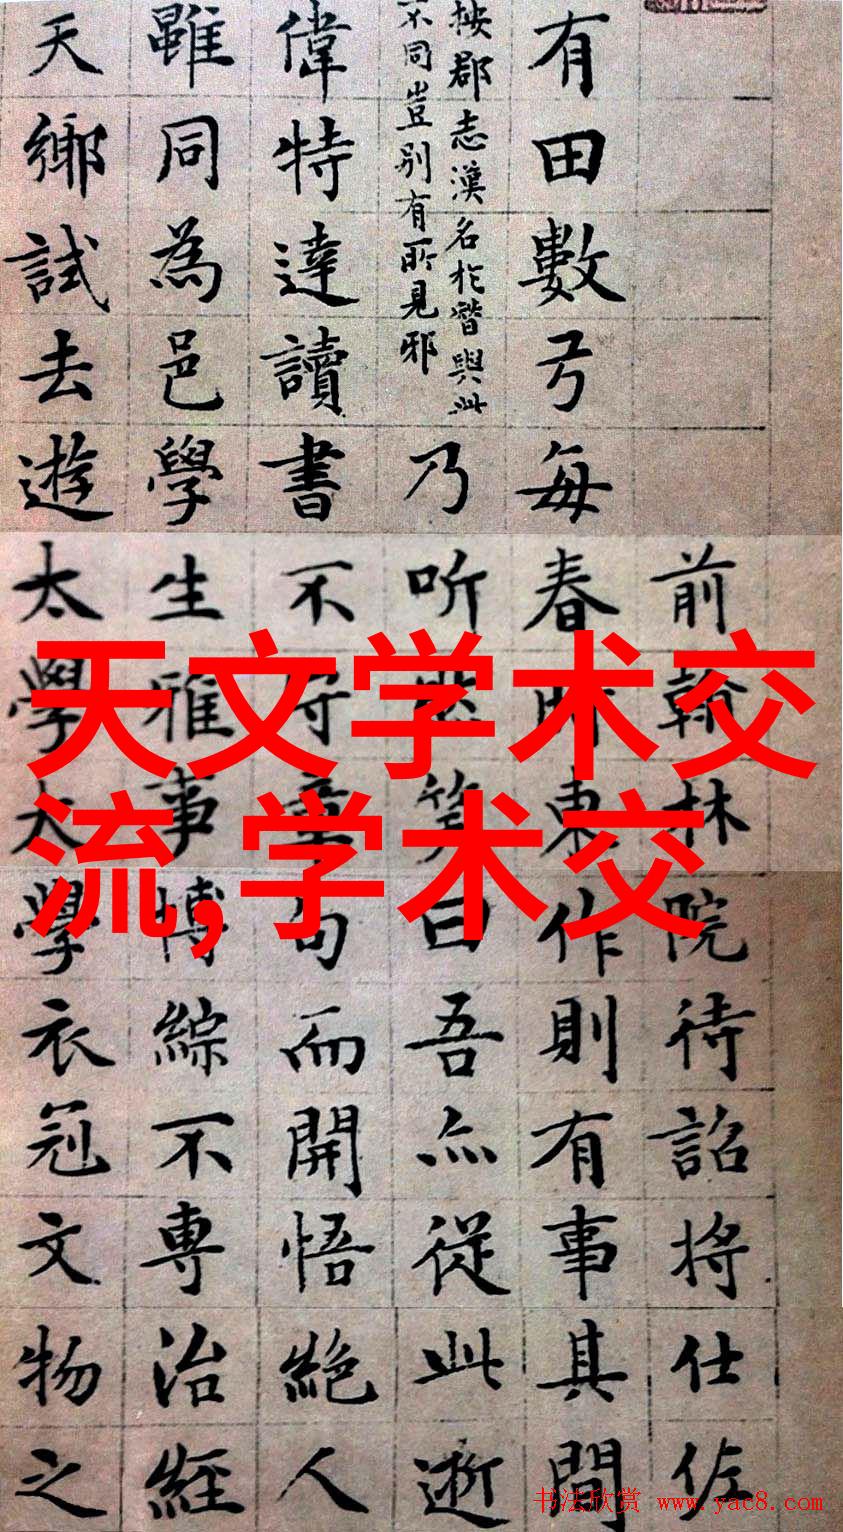 前翰林院待詔將仕佐
有田數弓每春時東作則有事其間
按郡志漢名於與此
不同豈別有所見邪
乃听然笑曰吾亦從此逝
偉特達讀書不章句而開悟絕人
雖同為邑學生雅事博綜不專治經
天鄉試去遊太學太學衣冠文物之
天文学术交
流,学术交
书法欣赏 www.yac8.com